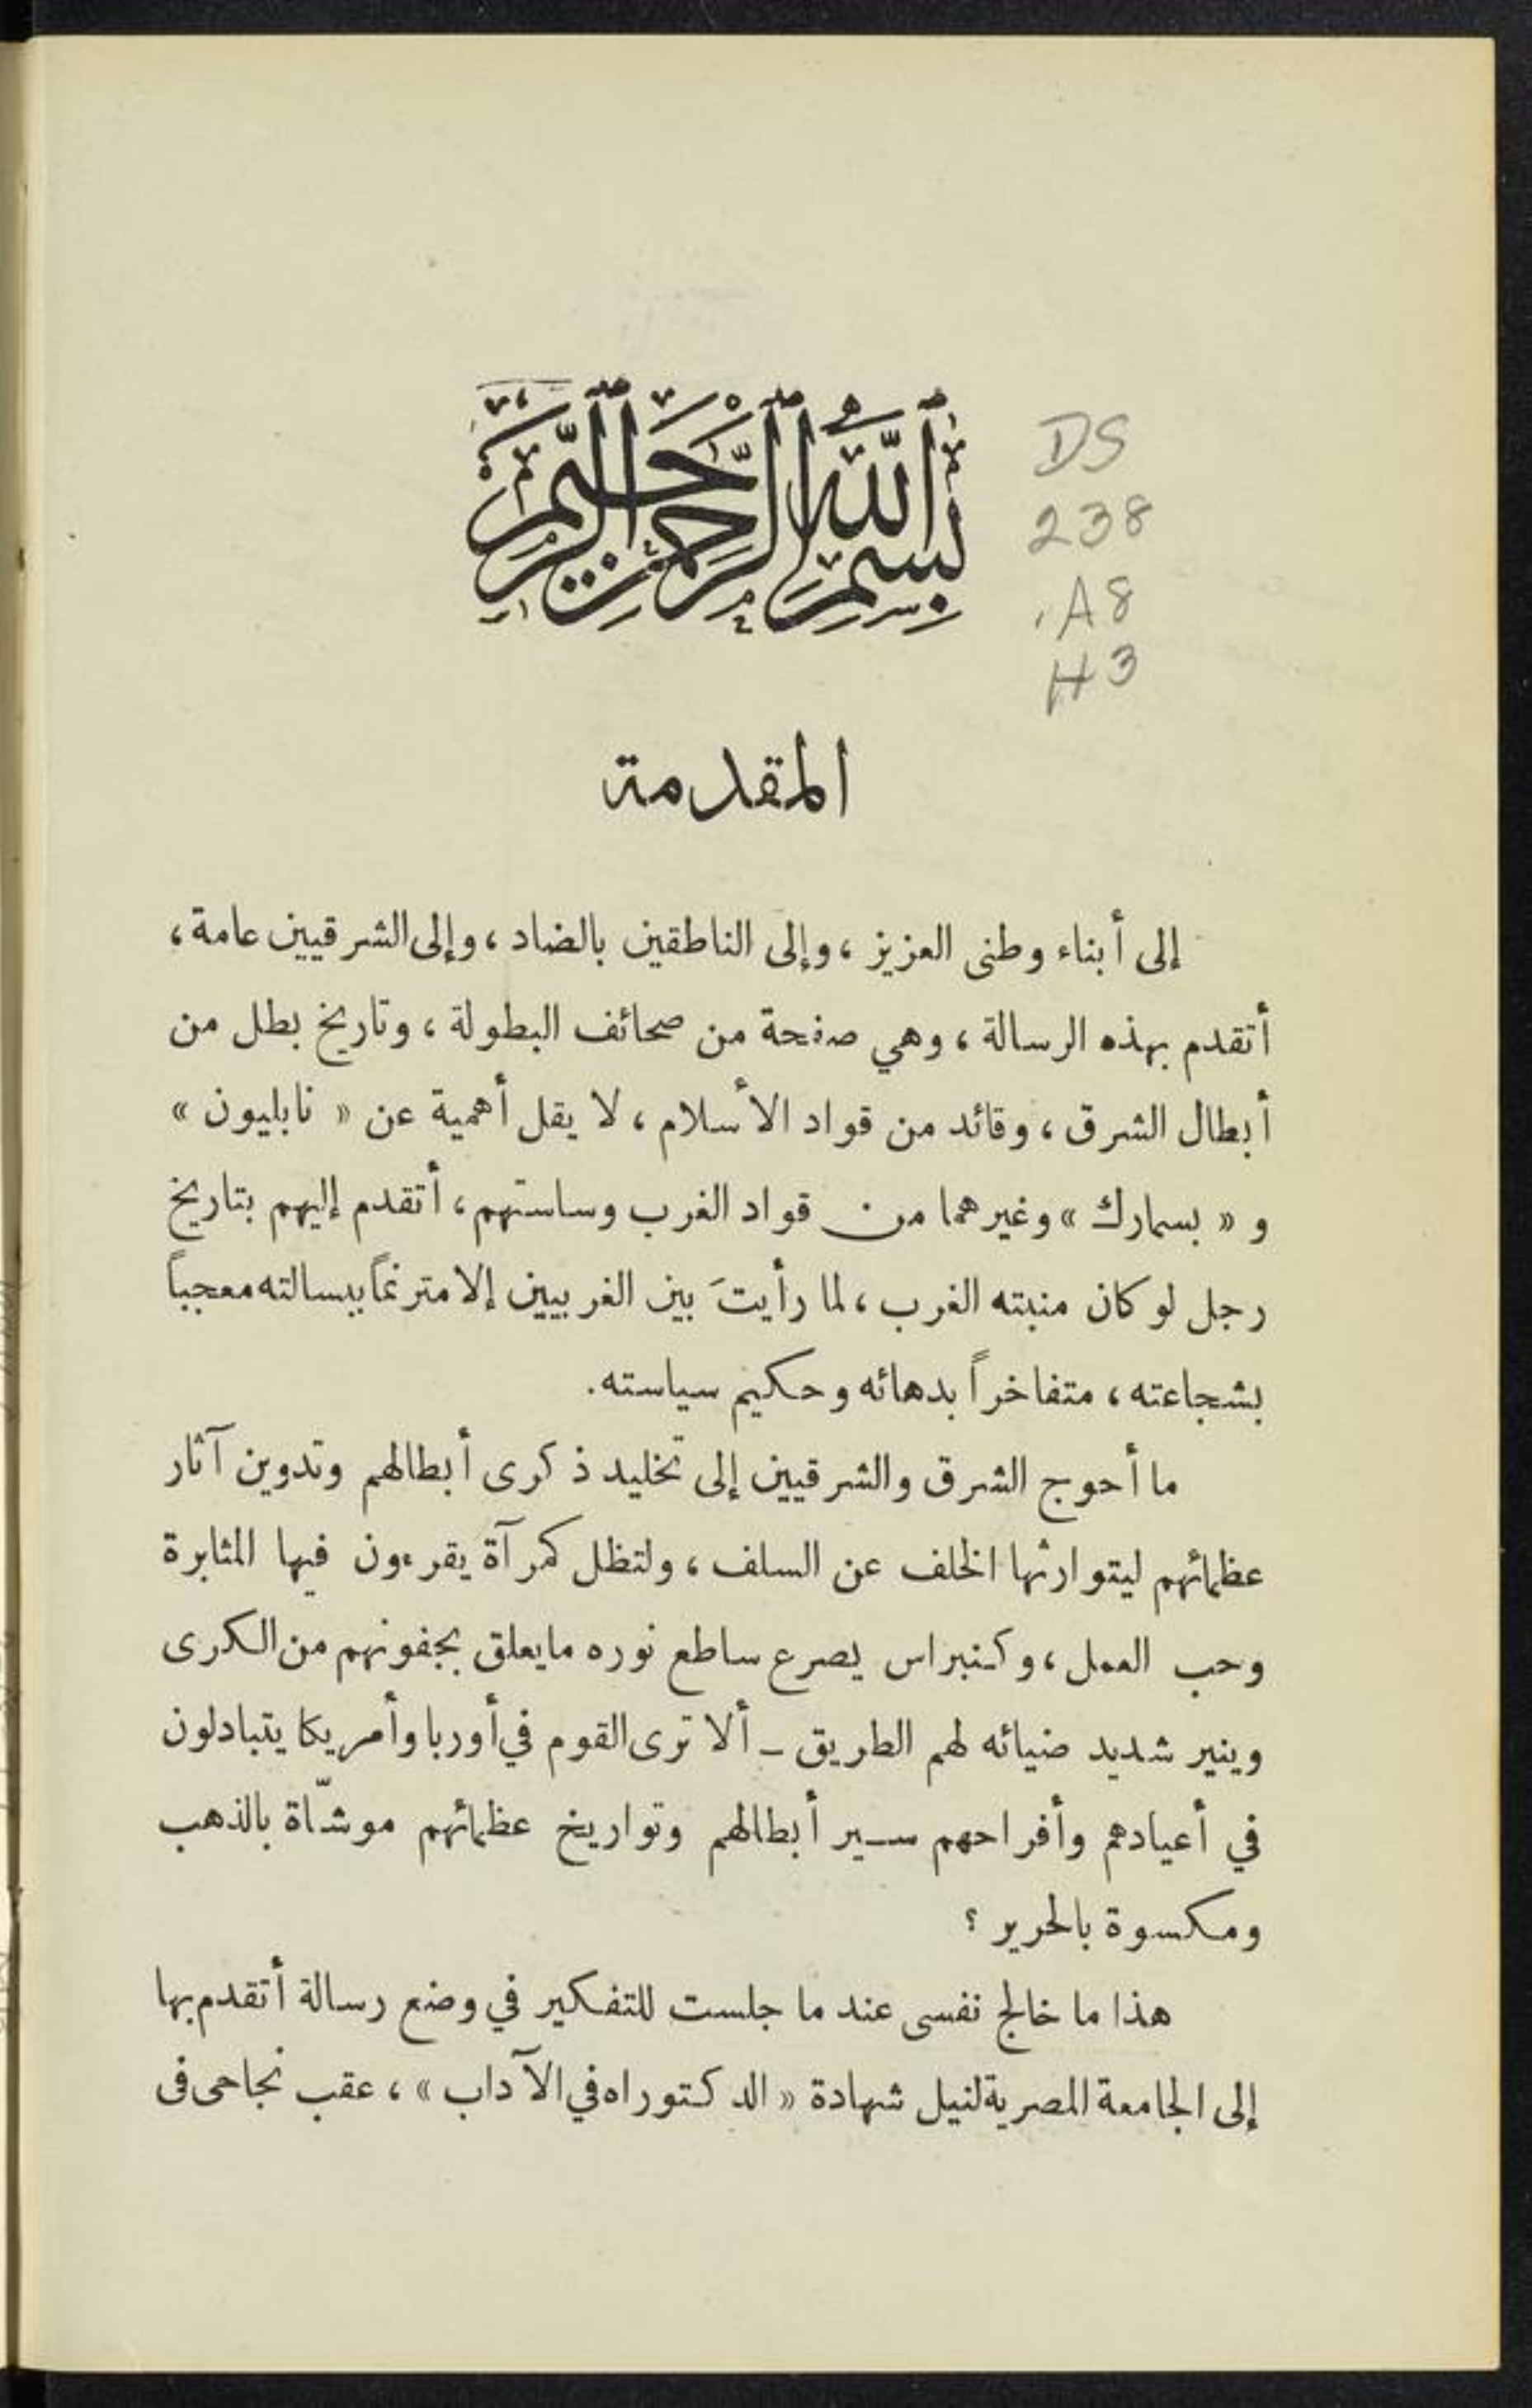 بسم الله الرحمن الرحيم
DS
238
.A8
H3
المقدمة
إلى أبناء وطنى العزيز ، وإلى الناطقين بالضاد ، وإلى الشرقيين عامة ،
أتقدم بهذه الرسالة ، وهي صفحة من صحائف البطولة ، وتاريخ بطل من
أبطال الشرق ، وقائد من قواد الأسلام ، لا يقل أهمية عن « نابليون »
و « بسمارك » وغيرهما من قواد الغرب وساستهم ، أتقدم إليهم بتاريخ
رجل لو كان منبته الغرب ، لما رأيتَ بين الغربيين إلا مترنماً ببسالته معجباً
بشجاعته ، متفاخراً بدهائه وحكيم سياسته .
ما أحوج الشرق والشرقيين إلى تخليد ذكرى أبطالهم وتدوين آثار
عظمائهم ليتوارثها الخلف عن السلف ، ولتظل كمرآة يقرءون فيها المثابرة
وحب العمل ، وكنبراس يصرع ساطع نوره مايعلق بجفونهم من الكرى
وينير شديد ضيائه لهم الطريق ـ ألا ترى القوم في أوربا وأمريكا يتبادلون
في أعيادهم وأفراحهم سير أبطالهم وتواريخ عظمائهم موشّاة بالذهب
ومكسوة بالحرير ؟
هذا ما خالج نفسى عند ما جلست للتفكير في وضع رسالة أتقدم بها
إلى الجامعة المصرية لنيل شهادة « الدكتوراه في الآداب » ، عقب نجاحى فى